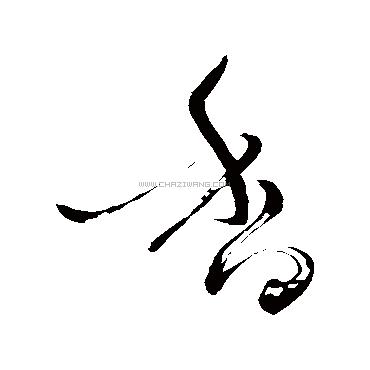 香
WWW.CHAZIWANG.COM